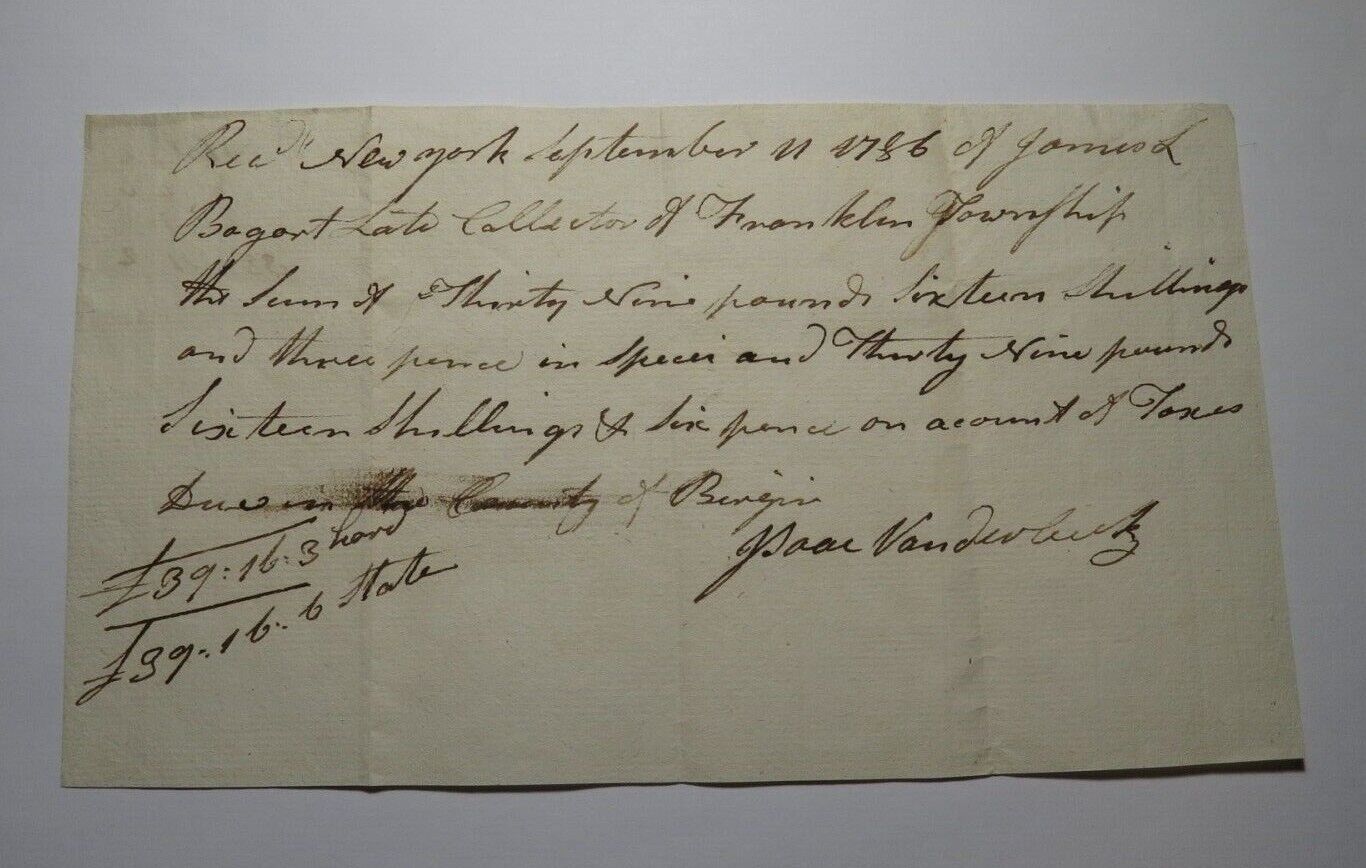 Recd. New york September 11 1786 of James L
Bogart Late Collector of Franklin Township
the Sum of Thirty Nine pounds Sixteen Shillings
and three pence in Specei and Thirty Nine pounds
Sixteen Shillings & Six pence on acount of Taxes
Due in the County of Bergin
£39:16:3 hard
£39:16:6 State
Isaac Vanderbeek